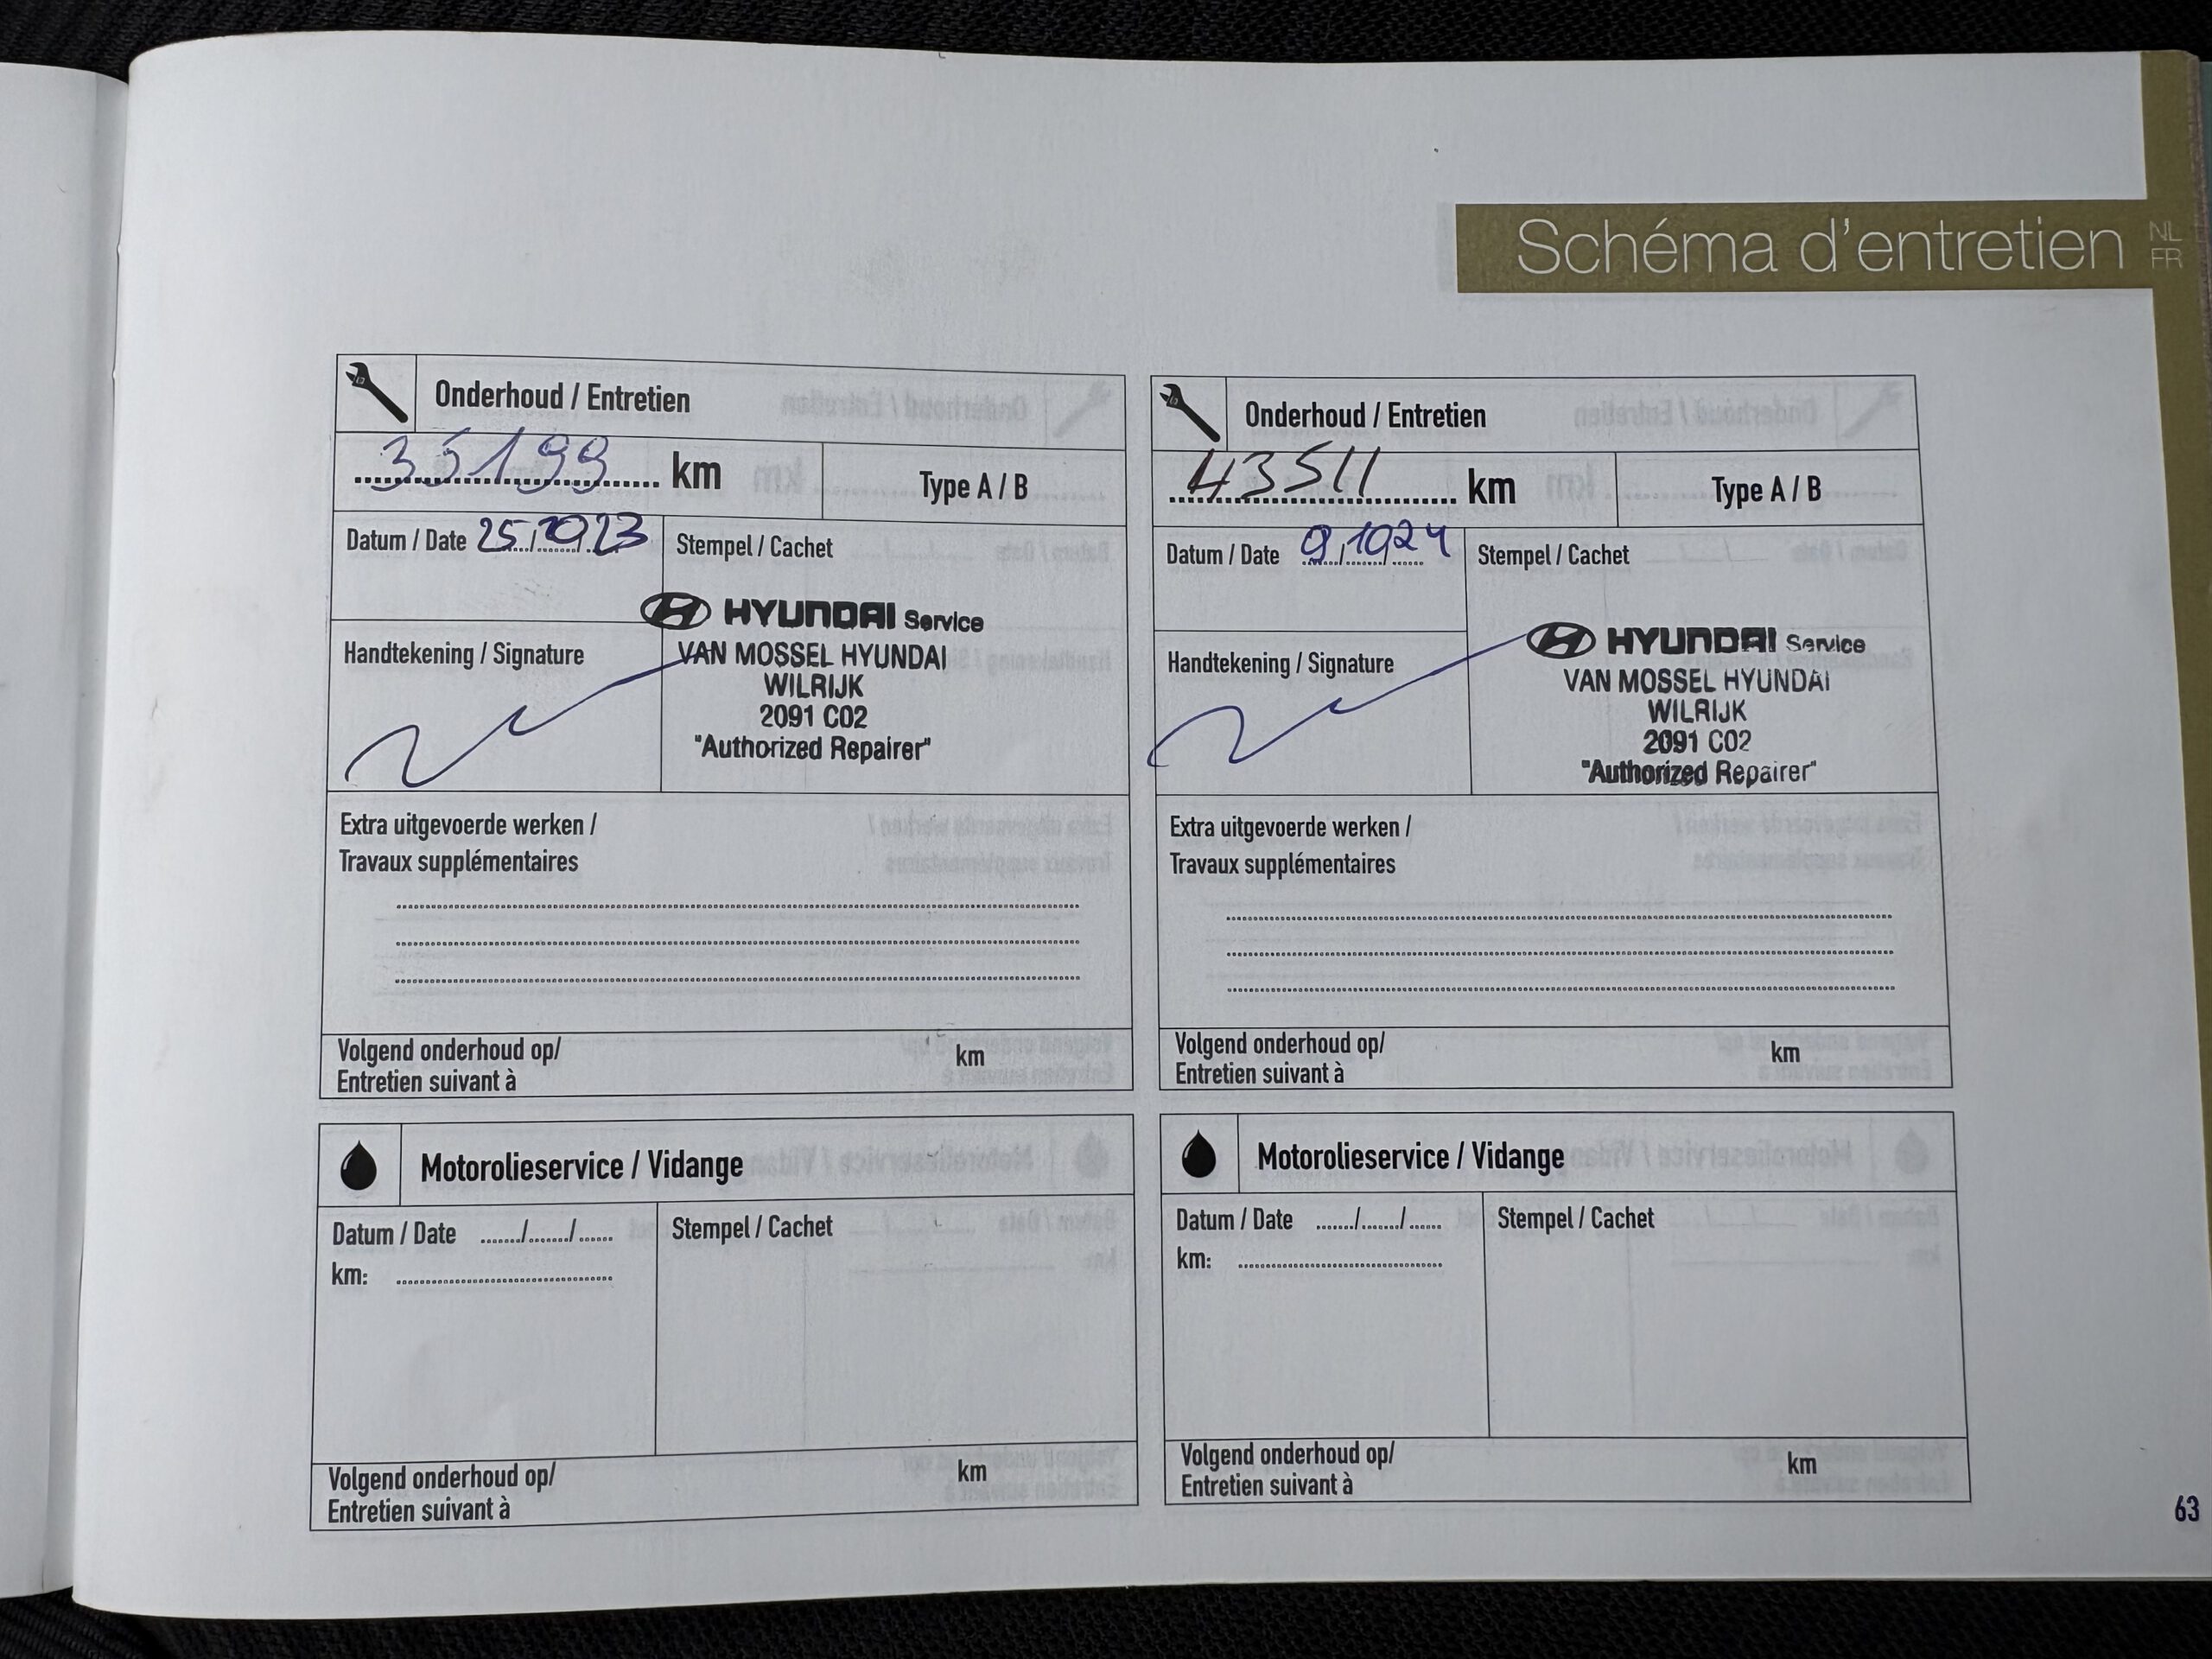 Schéma d'entretien
NL
FR
Onderhoud / Entretien
35199 km
Type A / B
Datum / Date 25/10/23
Stempel / Cachet
HYUNDAI Service
VAN MOSSEL HYUNDAI
WILRIJK
2091 C02
"Authorized Repairer"
Handtekening / Signature
Extra uitgevoerde werken /
Travaux supplémentaires
Volgend onderhoud op/
Entretien suivant à
km
Onderhoud / Entretien
43511 km
Type A / B
Datum / Date 9/10/24
Stempel / Cachet
HYUNDAI Service
VAN MOSSEL HYUNDAI
WILRIJK
2091 C02
"Authorized Repairer"
Handtekening / Signature
Extra uitgevoerde werken /
Travaux supplémentaires
Volgend onderhoud op/
Entretien suivant à
km
Motorolieservice / Vidange
Datum / Date ......./......./......
km:
Stempel / Cachet
Volgend onderhoud op/
Entretien suivant à
km
Motorolieservice / Vidange
Datum / Date ......./......./......
km:
Stempel / Cachet
Volgend onderhoud op/
Entretien suivant à
km
63